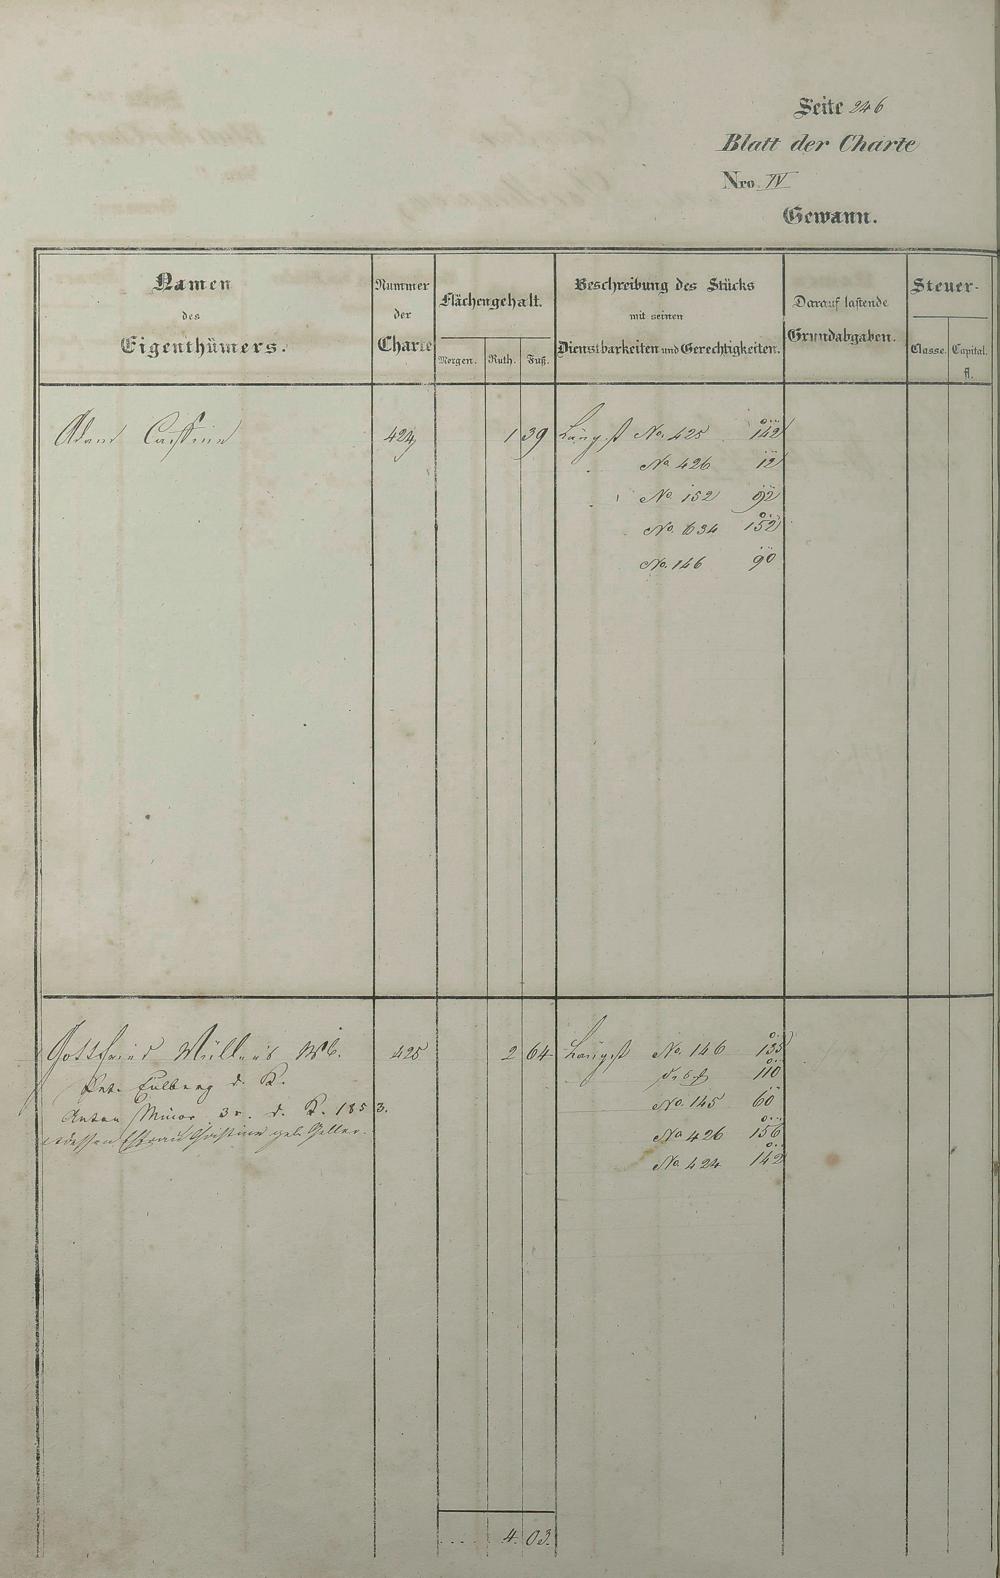 Seite 246
Blatt der Charte
Nro. IV
Gewann.
Namen
des
Eigenthümers.
Nummer
der
Charte
Flächengehalt.
Morgen. Ruth. Fuß.
Beschreibung des Stücks
mit seinen
Dienstbarkeiten und Gerechtigkeiten.
Darauf lastende
Grundabgaben.
Steuer-
Classe. Capital.
fl.
Adam 424 1 39 Längst No. 425 142
No 426 12
No. 152 92
No. 634 152
No. 146 90
Gottfried Müller's Wb. 425 2 64 Längst No. 146 135
110
Pet. Eulberg d. K.
No. 145 60
Anton Minor 3r. d. K. 1853.
No 426 156
u dessen Ehefrau Christine geb. Geller.
No. 424 142
.... 4. 03.